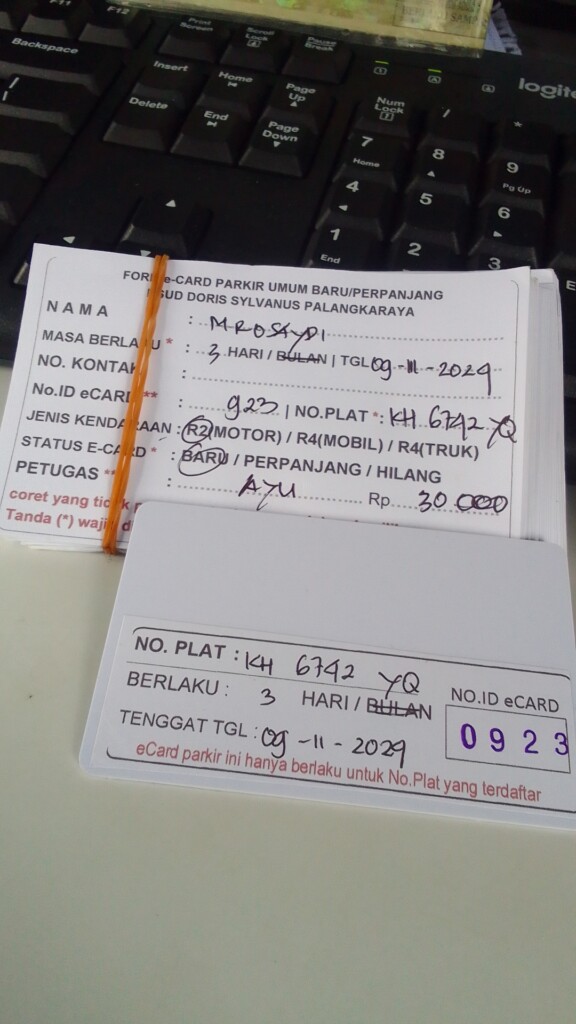 F11
F12
Print Screen
Scroll Lock
Pause Break
Backspace
Insert
Home
Page Up
logite
Delete
End
Page Down
Num Lock
/
*
7 Home
8
9 Pg Up
4
5
6
1 End
2
3
FOR e-CARD PARKIR UMUM BARU/PERPANJANG
SUD DORIS SYLVANUS PALANGKARAYA
NAMA : M ROSAYDI
MASA BERLA U * : 3 HARI / BULAN | TGL 09-11-2024
NO. KONTA :
No.ID eCARD ** : 923 | NO.PLAT * : KH 6742 YQ
JENIS KENDA RAAN : R2(MOTOR) / R4(MOBIL) / R4(TRUK)
STATUS E-CARD * : BARU / PERPANJANG / HILANG
PETUGAS ** : AYU Rp 30.000
coret yang tid k
Tanda (*) waji d
NO. PLAT : KH 6742 YQ
BERLAKU : 3 HARI / BULAN
NO.ID eCARD
TENGGAT TGL : 09-11-2024
0923
eCard parkir ini hanya berlaku untuk No.Plat yang terdaftar